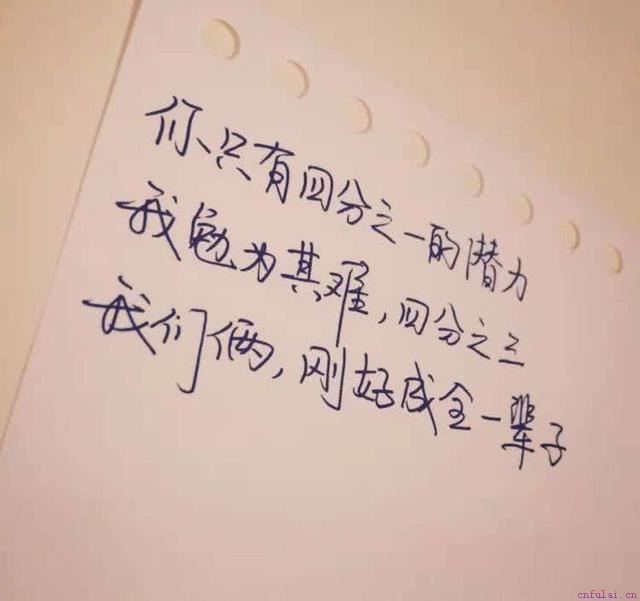 你只有四分之一的潜力
我勉为其难,四分之三
我们俩,刚好成全一辈子
cnfulai.cn